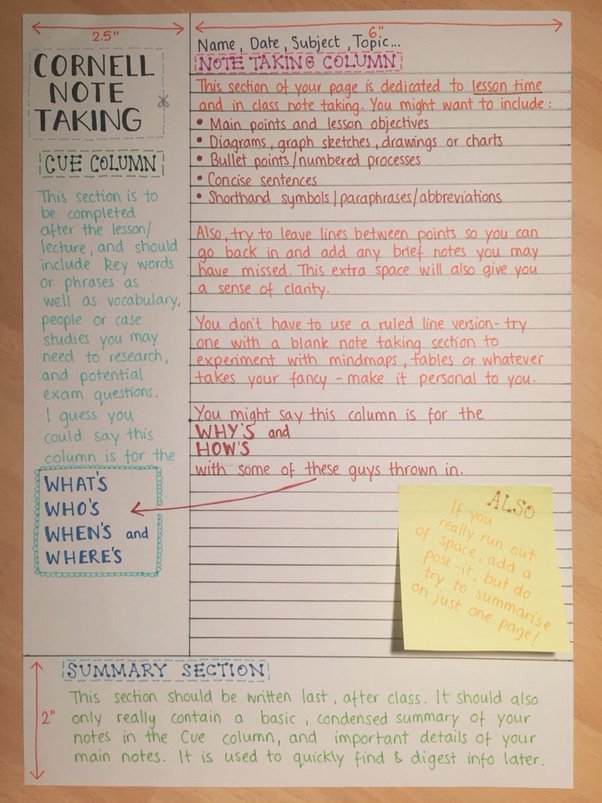 2.5"
6"
CORNELL
NOTE
TAKING
CUE COLUMN
This section is to
be completed
after the lesson/
lecture, and should
include key words
or phrases as
well as vocabulary,
people or case
studies you may
need to research,
and potential
exam questions.
I guess you
could say this
column is for the
WHAT'S
WHO'S
WHEN'S and
WHERE'S
Name, Date, Subject, Topic...
NOTE TAKING COLUMN
This section of your page is dedicated to lesson time
and in class note taking. You might want to include:
• Main points and lesson objectives
• Diagrams, graph sketches, drawings or charts
• Bullet points/numbered processes
• Concise sentences
• Shorthand symbols/paraphrases/abbreviations
Also, try to leave lines between points so you can
go back in and add any brief notes you may
have missed. This extra space will also give you
a sense of clarity.
You don't have to use a ruled line version - try
one with a blank note taking section to
experiment with mindmaps, tables or whatever
takes your fancy - make it personal to you.
You might say this column is for the
WHY'S and
HOW'S
with some of these guys thrown in.
ALSO
If you
really run out
of space, add a
post-it, but do
try to summarise
on just one page!
SUMMARY SECTION
2"
This section should be written last, after class. It should also
only really contain a basic, condensed summary of your
notes in the Cue column, and important details of your
main notes. It is used to quickly find & digest info later.